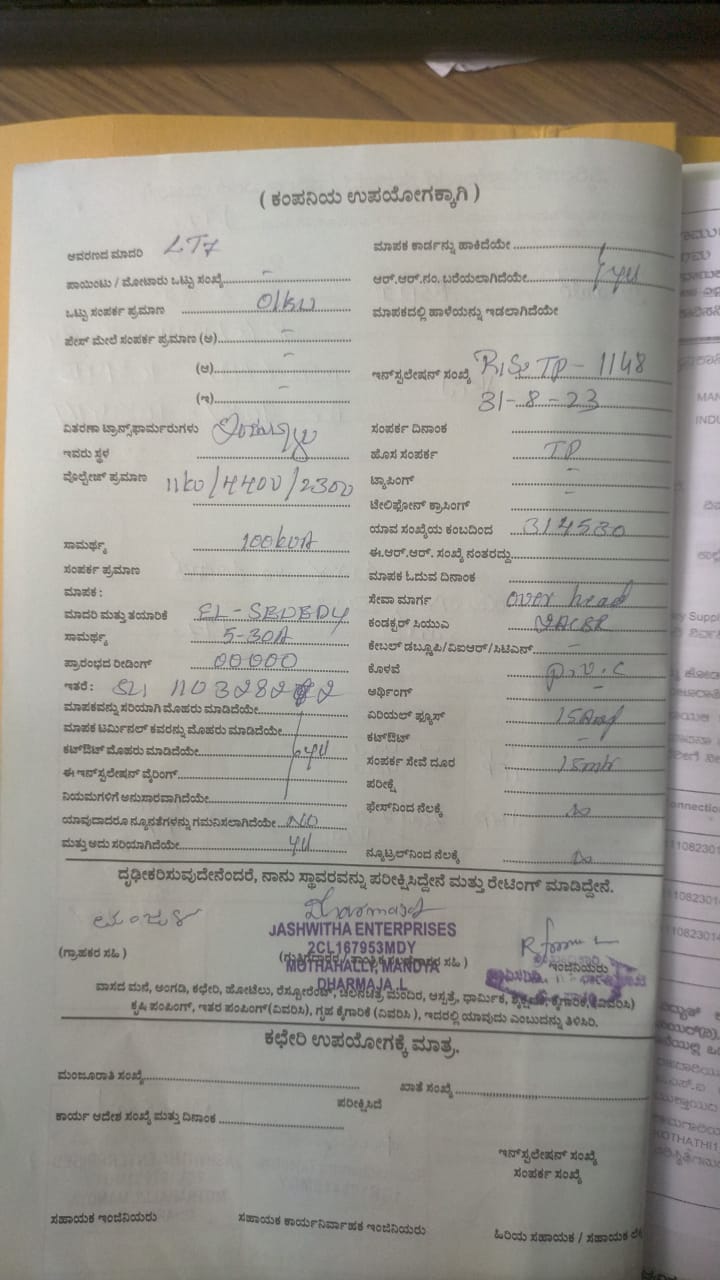 ( ಕಂಪನಿಯ ಉಪಯೋಗಕ್ಕಾಗಿ )
ಆವರಣದ ಮಾದರಿ LT7
ಪಾಯಿಂಟು / ಮೋಟಾರು ಒಟ್ಟು ಸಂಖ್ಯೆ -
ಒಟ್ಟು ಸಂಪರ್ಕ ಪ್ರಮಾಣ 01kw
ಫೇಸ್ ಮೇಲೆ ಸಂಪರ್ಕ ಪ್ರಮಾಣ (ಅ) -
(ಆ) -
(ಇ) -
ವಿತರಣಾ ಟ್ರಾನ್ಸ್‌ಫಾರ್ಮರುಗಳು
ಇವರು ಸ್ಥಳ
ವೋಲ್ಟೇಜ್ ಪ್ರಮಾಣ 11kv/440v/230v
ಸಾಮರ್ಥ್ಯ 100kVA
ಸಂಪರ್ಕ ಪ್ರಮಾಣ
ಮಾಪಕ :
ಮಾದರಿ ಮತ್ತು ತಯಾರಿಕೆ
ಸಾಮರ್ಥ್ಯ 5-30A
ಪ್ರಾರಂಭದ ರೀಡಿಂಗ್ 00000
ಇತರೆ :
ಮಾಪಕವನ್ನು ಸರಿಯಾಗಿ ಮೊಹರು ಮಾಡಿದೆಯೇ
ಮಾಪಕ ಟರ್ಮಿನಲ್ ಕವರನ್ನು ಮೊಹರು ಮಾಡಿದೆಯೇ
ಕಟ್‌ಔಟ್ ಮೊಹರು ಮಾಡಿದೆಯೇ yu
ಈ ಇನ್‌ಸ್ಟಲೇಷನ್ ವೈರಿಂಗ್
ನಿಯಮಗಳಿಗೆ ಅನುಸಾರವಾಗಿದೆಯೇ
ಯಾವುದಾದರೂ ನ್ಯೂನತೆಗಳನ್ನು ಗಮನಿಸಲಾಗಿದೆಯೇ NO
ಮತ್ತು ಅದು ಸರಿಯಾಗಿದೆಯೇ yu
ಮಾಪಕ ಕಾರ್ಡನ್ನು ಹಾಕಿದೆಯೇ
ಆರ್.ಆರ್.ನಂ. ಬರೆಯಲಾಗಿದೆಯೇ yu
ಮಾಪಕದಲ್ಲಿ ಹಾಳೆಯನ್ನು ಇಡಲಾಗಿದೆಯೇ
ಇನ್‌ಸ್ಟಲೇಷನ್ ಸಂಖ್ಯೆ TP - 1148
31-8-23
ಸಂಪರ್ಕ ದಿನಾಂಕ
ಹೊಸ ಸಂಪರ್ಕ TP
ಟ್ಯಾಪಿಂಗ್ -
ಟೇಲಿಫೋನ್ ಕ್ರಾಸಿಂಗ್ -
ಯಾವ ಸಂಖ್ಯೆಯ ಕಂಬದಿಂದ 314530
ಈ.ಆರ್.ಆರ್. ಸಂಖ್ಯೆ ನಂತರದ್ದು
ಮಾಪಕ ಓದುವ ದಿನಾಂಕ
ಸೇವಾ ಮಾರ್ಗ over head
ಕಂಡಕ್ಟರ್ ಸಿಯುಎ
ಕೇಬಲ್ ಡಬ್ಲೂಪಿ/ವಿಐಆರ್/ಸಿಟಿಎಸ್ -
ಕೊಳವೆ p.v.c
ಅರ್ಥಿಂಗ್ -
ಏರಿಯಲ್ ಫ್ಯೂಸ್ 15Amp
ಕಟ್‌ಔಟ್ -
ಸಂಪರ್ಕ ಸೇವೆ ದೂರ 15mtr
ಪರೀಕ್ಷೆ
ಫೇಸ್‌ನಿಂದ ನೆಲಕ್ಕೆ ∞
ನ್ಯೂಟ್ರಲ್‌ನಿಂದ ನೆಲಕ್ಕೆ ∞
ದೃಢೀಕರಿಸುವುದೇನೆಂದರೆ, ನಾನು ಸ್ಥಾವರವನ್ನು ಪರೀಕ್ಷಿಸಿದ್ದೇನೆ ಮತ್ತು ರೇಟಿಂಗ್ ಮಾಡಿದ್ದೇನೆ.
JASHWITHA ENTERPRISES
2CL167953MDY
MOTHAHALLY, MANDYA
DHARMAJA.L
(ಗ್ರಾಹಕರ ಸಹಿ )
ಸಹಿ )
ಇಂಜಿನಿಯರು
ವಾಸದ ಮನೆ, ಅಂಗಡಿ, ಕಛೇರಿ, ಹೋಟೆಲು, ರೆಸ್ಟೋರೆಂಟ್, ಚಲನಚಿತ್ರ ಮಂದಿರ, ಆಸ್ಪತ್ರೆ, ಧಾರ್ಮಿಕ, ಶೈಕ್ಷಣಿಕ, ಕೈಗಾರಿಕೆ (ವಿವರಿಸಿ)
ಕೃಷಿ ಪಂಪಿಂಗ್, ಇತರ ಪಂಪಿಂಗ್(ವಿವರಿಸಿ), ಗೃಹ ಕೈಗಾರಿಕೆ (ವಿವರಿಸಿ ), ಇದರಲ್ಲಿ ಯಾವುದು ಎಂಬುದನ್ನು ತಿಳಿಸಿರಿ.
ಕಛೇರಿ ಉಪಯೋಗಕ್ಕೆ ಮಾತ್ರ.
ಮಂಜೂರಾತಿ ಸಂಖ್ಯೆ
ಖಾತೆ ಸಂಖ್ಯೆ
ಪರೀಕ್ಷಿಸಿದೆ
ಕಾರ್ಯ ಆದೇಶ ಸಂಖ್ಯೆ ಮತ್ತು ದಿನಾಂಕ
ಇನ್‌ಸ್ಟಲೇಷನ್ ಸಂಖ್ಯೆ
ಸಂಪರ್ಕ ಸಂಖ್ಯೆ
ಸಹಾಯಕ ಇಂಜಿನಿಯರು
ಸಹಾಯಕ ಕಾರ್ಯನಿರ್ವಾಹಕ ಇಂಜಿನಿಯರು
ಹಿರಿಯ ಸಹಾಯಕ / ಸಹಾಯಕ